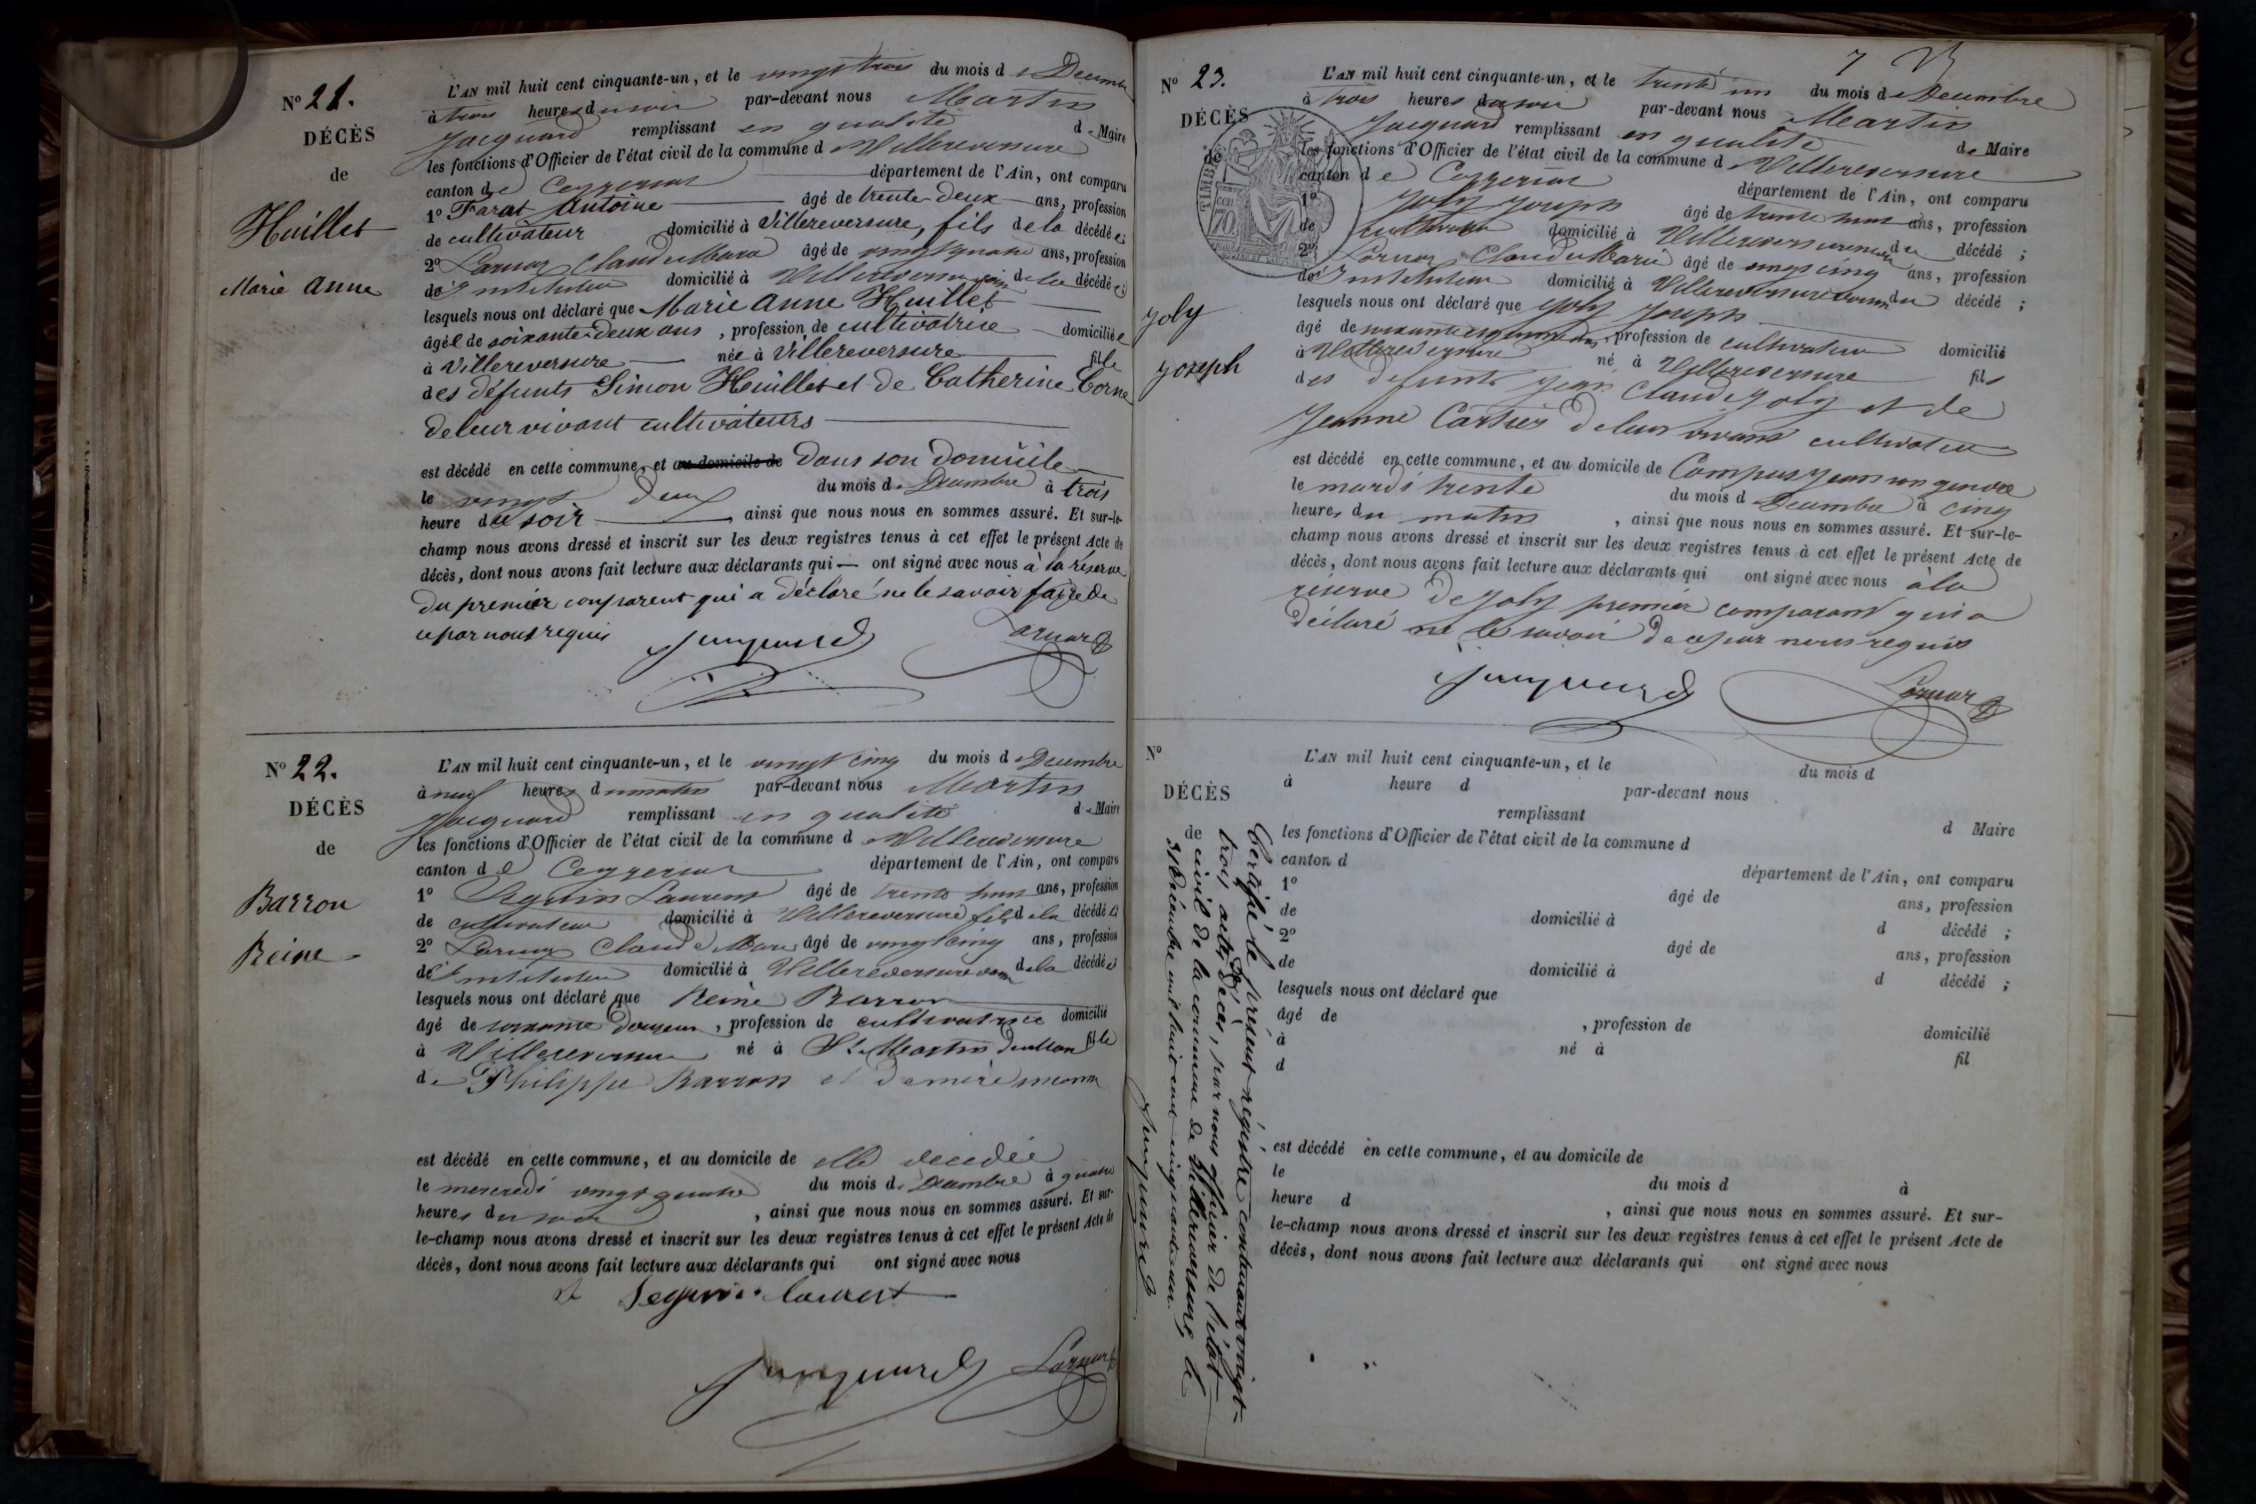 N° 21.
DÉCÈS
de
Huillet
Marie Anne
L'AN mil huit cent cinquante-un, et le vingt trois du mois de Decembre
à trois heures du soir par-devant nous Martin
Jacquard remplissant en qualité de Maire
les fonctions d'Officier de l'état civil de la commune de Villereversure
canton de Ceyzeriat département de l'Ain, ont comparu
1° Farat Antoine âgé de trente deux ans, profession
de cultivateur domicilié à Villereversure, fils de la décédée;
2° Claude Marie âgé de vingt quatre ans, profession
d'Instituteur domicilié à Villereversure voisin de la décédée;
lesquels nous ont déclaré que Marie Anne Huillet
âgée de soixante-deux ans, profession de cultivatrice domiciliée
à Villereversure née à Villereversure fille
des défunts Simon Huillet et de Catherine Corne
de leur vivant cultivateurs
est décédé en cette commune, et au domicile de Dans son Domicile
le vingt deux du mois de Decembre à trois
heure du soir, ainsi que nous nous en sommes assuré. Et sur-le-
champ nous avons dressé et inscrit sur les deux registres tenus à cet effet le présent Acte de
décès, dont nous avons fait lecture aux déclarants qui — ont signé avec nous à la réserve
du premier comparent qui a déclaré ne le savoir faire de
ce par nous requis
Jacquard
N° 22.
DÉCÈS
de
Barron
Reine
L'AN mil huit cent cinquante-un, et le vingt cinq du mois de Decembre
à neuf heures du matin par-devant nous Martin
Jacquard remplissant en qualité de Maire
les fonctions d'Officier de l'état civil de la commune de Villereversure
canton de Ceyzeriat département de l'Ain, ont comparu
1° Seguin Laurent âgé de trente ans, profession
de cultivateur domicilié à Villereversure fils de la décédée
2° Claude Marie âgé de vingt cinq ans, profession
d'Instituteur domicilié à Villereversure voisin de la décédée
lesquels nous ont déclaré que Reine Barron
âgé de soixante Douze ans, profession de cultivatrice domicilié
à Villereversure né à St Martin Dumont fille
de Philippe Barron et de mère
est décédé en cette commune, et au domicile de elle décédée
le mercredi vingt quatre du mois de Decembre à quatre
heures du soir, ainsi que nous nous en sommes assuré. Et sur-
le-champ nous avons dressé et inscrit sur les deux registres tenus à cet effet le présent Acte de
décès, dont nous avons fait lecture aux déclarants qui ont signé avec nous
Seguin Laurent
Jacquard
7
N° 23.
DÉCÈS
de
TIMBRE
70
Joly
Joseph
L'AN mil huit cent cinquante-un, et le trente un du mois de Decembre
à trois heures du soir par-devant nous Martin
Jacquard remplissant en qualité de Maire
les fonctions d'Officier de l'état civil de la commune de Villereversure
canton de Ceyzeriat département de l'Ain, ont comparu
1° Joly Joseph âgé de trente ans, profession
de cultivateur domicilié à Villereversure neveu du décédé;
2° Claude Marie âgé de vingt cinq ans, profession
d'Instituteur domicilié à Villereversure voisin du décédé;
lesquels nous ont déclaré que Joly Joseph
âgé de soixante ans, profession de cultivateur domicilié
à Villereversure né à Villereversure fils
des defunts Jean Claude Joly et de
Jeanne Cartier de leur vivant cultivateurs
est décédé en cette commune, et au domicile de Jean son gendre
le mardi trente du mois de Decembre à cinq
heures du matin, ainsi que nous nous en sommes assuré. Et sur-le-
champ nous avons dressé et inscrit sur les deux registres tenus à cet effet le présent Acte de
décès, dont nous avons fait lecture aux déclarants qui ont signé avec nous à la
réserve de Joly premier comparant qui a
déclaré ne le savoir de ce par nous requis
Jacquard
N°
DÉCÈS
de
L'AN mil huit cent cinquante-un, et le du mois d
à heure d par-devant nous
remplissant d Maire
les fonctions d'Officier de l'état civil de la commune d
canton d département de l'Ain, ont comparu
1° âgé de ans, profession
de domicilié à d décédé;
2° âgé de ans, profession
de domicilié à d décédé;
lesquels nous ont déclaré que
âgé de, profession de domicilié
à né à fil
d
est décédé en cette commune, et au domicile de
le du mois d à
heure d, ainsi que nous nous en sommes assuré. Et sur-
le-champ nous avons dressé et inscrit sur les deux registres tenus à cet effet le présent Acte de
décès, dont nous avons fait lecture aux déclarants qui ont signé avec nous
Certifié le présent régistre contenant vingt-
trois actes de Décès, par nous officier de l'état
civil de la commune de Villereversure, le
31 Décembre mil huit cent cinquante un.
Jacquard